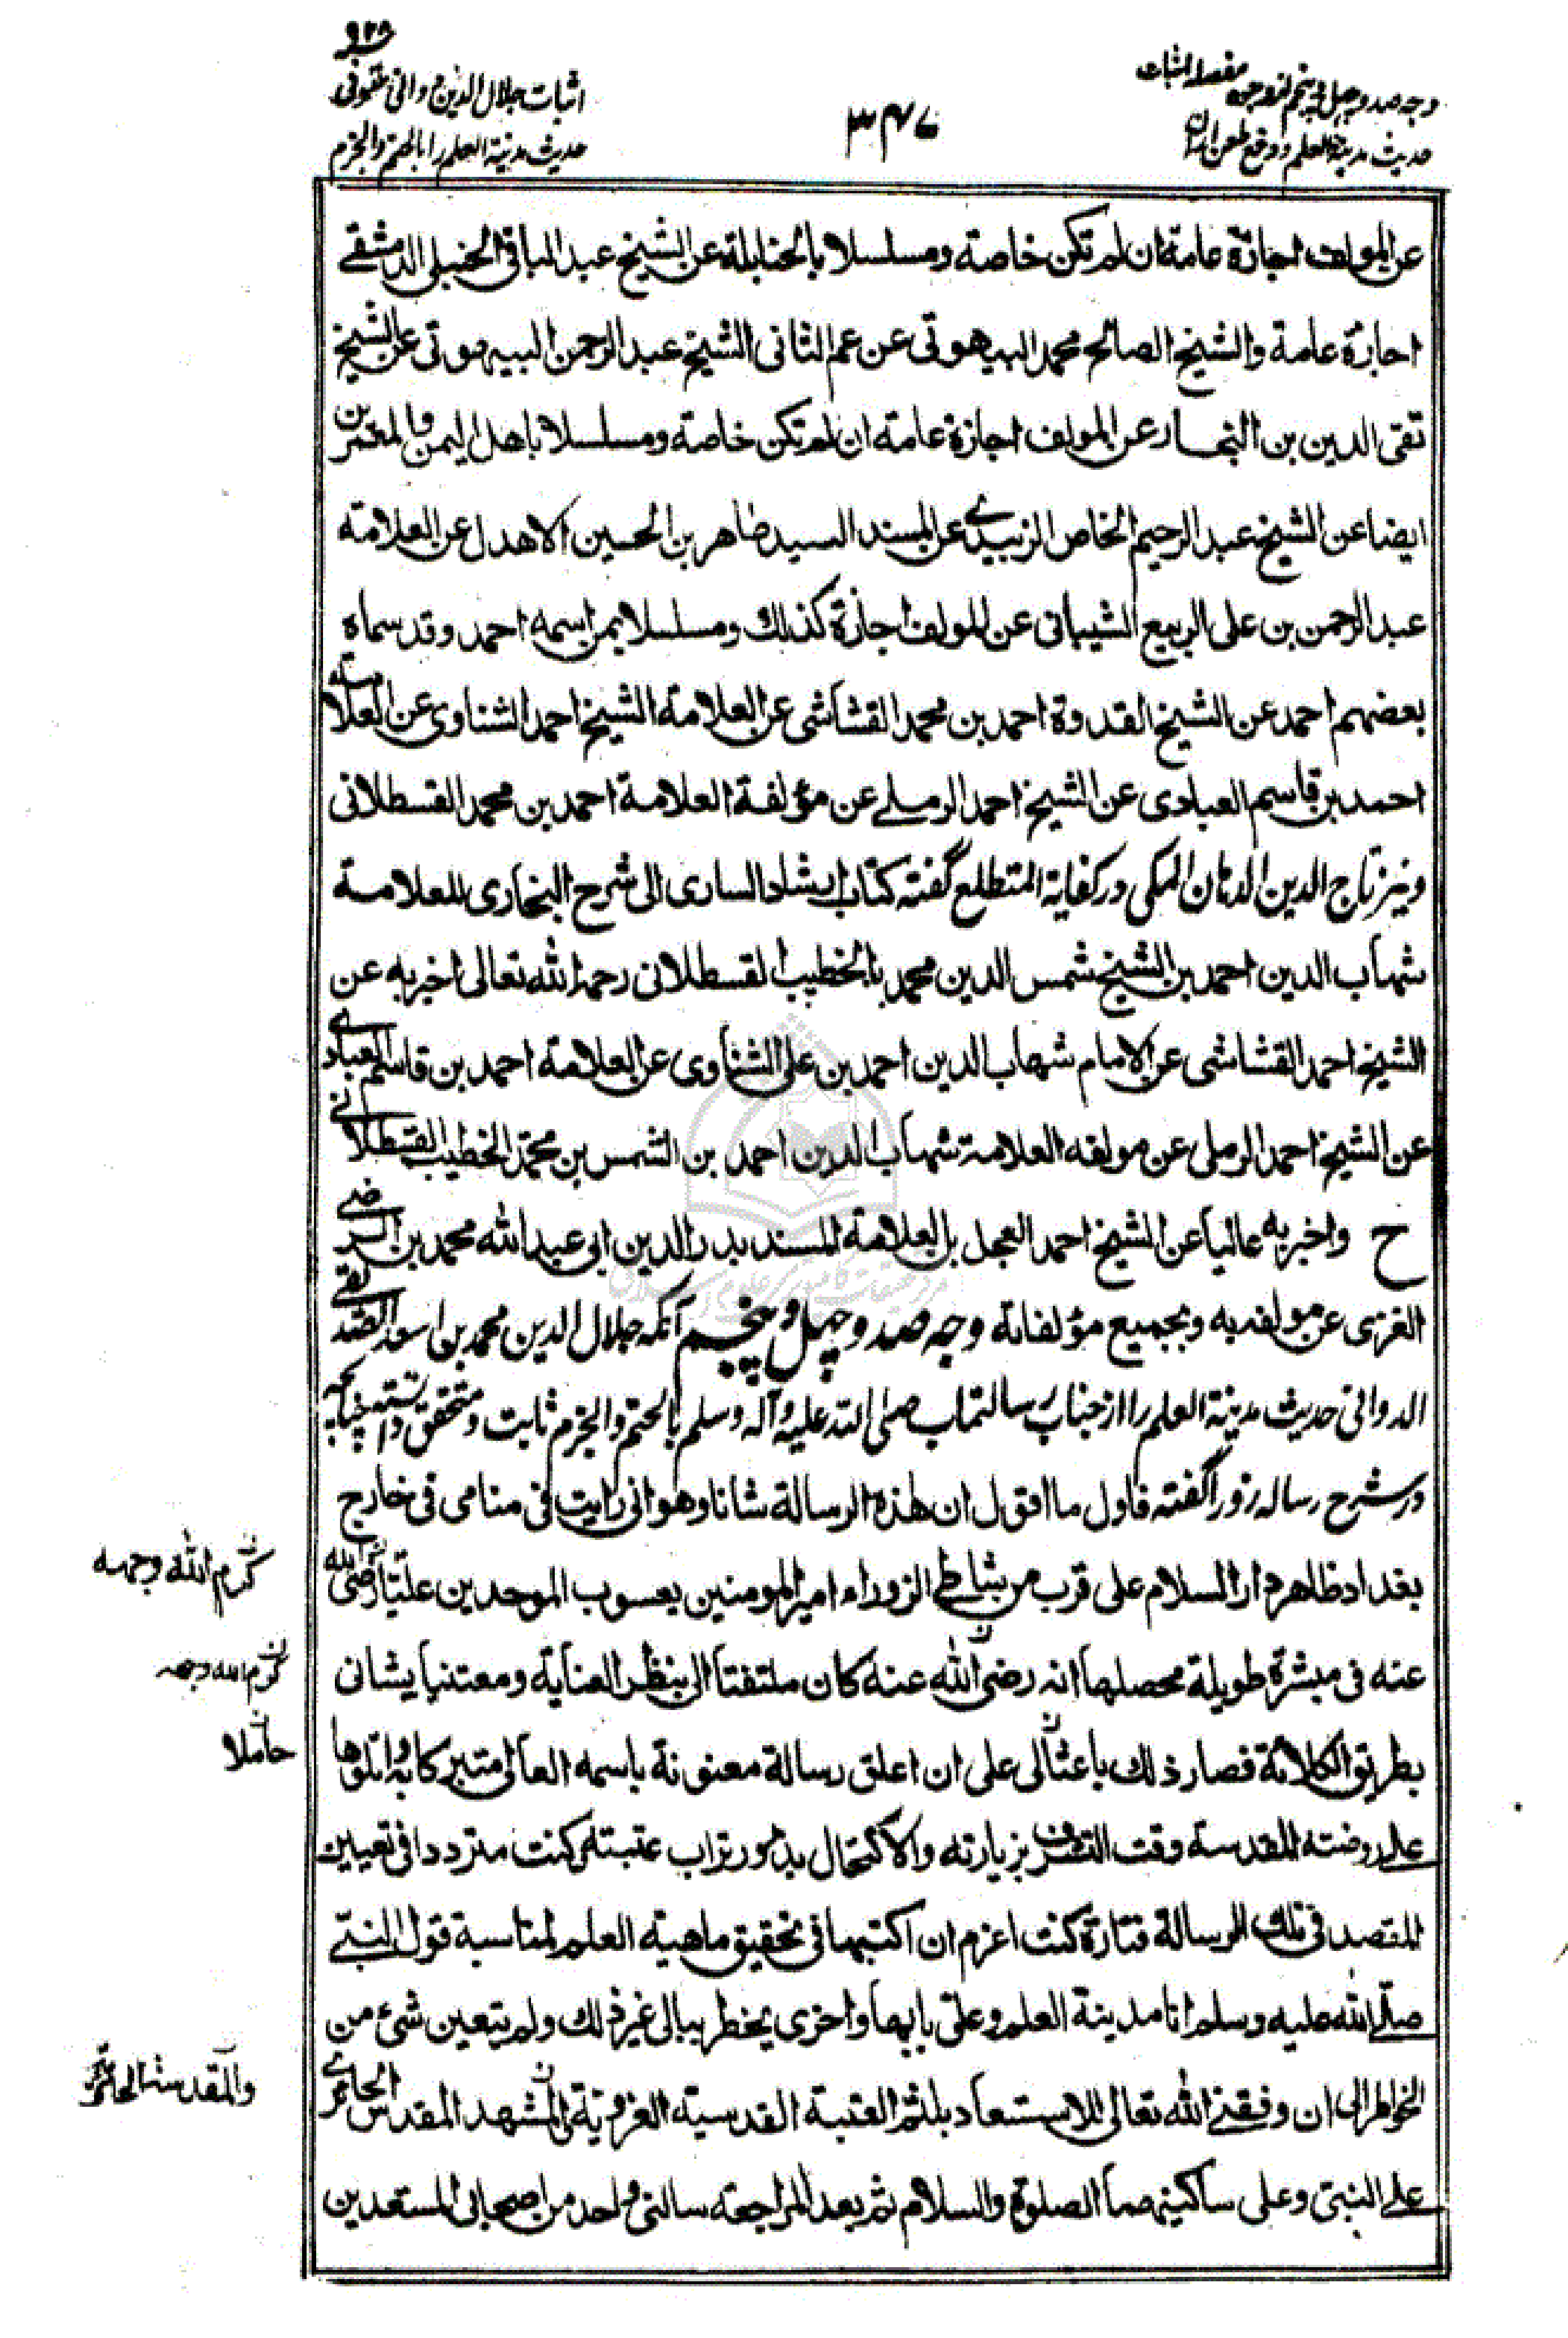 ۹۲۸
وجه صد و چهل و پنجم از وجوه مفصله اثبات
حدیث مدینة العلم و دفع طعن
۳۴۷
اثبات جلال الدین دوانی
حدیث مدینة العلم را بالحتم والجزم
عن المولف اجازة عامة ان لم تکن خاصة ومسلسلا بالحنابلة عن الشیخ عبد الباقی الحنبلی الدمشقے
اجازة عامة والشیخ الصالح محمد البهیوتی عن عم الثانی الشیخ عبد الرحمن البیهوتی عن الشیخ
تقی الدین بن النجار عن المولف اجازة عامة ان لم تکن خاصة ومسلسلا باهل الیمن والمعمرین
ایضا عن الشیخ عبد الرحیم الخاص الزبیدے عن المسند السید طاهر بن الحسین الاهدل عن العلامة
عبد الرحمن بن علی الربیع الشیبانی عن المولف اجازة کذلك ومسلسلا بمن اسمه احمد وقد سماه
بعضهم احمد عن الشیخ القدوة احمد بن محمد القشاشی عن العلامة الشیخ احمد الشناوی عن العلامة
احمد بن قاسم العبادی عن الشیخ احمد الرملے عن مؤلفة العلامة احمد بن محمد القسطلانی
ونیز تاج الدین الدهان المکی در کفایة المتطلع گفته کتاب ارشاد الساری الی شرح البخاری للعلامة
شهاب الدین احمد بن الشیخ شمس الدین محمد بالخطیب القسطلانی رحمه الله تعالی اخبر به عن
الشیخ احمد القشاشی عن الامام شهاب الدین احمد بن علی الشناوی عن العلامة احمد بن قاسم العبادے
عن الشیخ احمد الرملی عن مولفه العلامة شهاب الدین احمد بن الشمس بن محمد الخطیب القسطلانی
ح واخبر به عالیا عن الشیخ احمد العجل بل العلامة المسند بدر الدین ابی عبد الله محمد بن الرضی
الغزی عن مولفه به وبجمیع مؤلفاته وجه صد و چهل و پنجم آنکه جلال الدین محمد بن اسعد الصدیقی
الدوانی حدیث مدینة العلم را از جناب رسالتماب صلی الله علیه وآله وسلم بالحتم والجزم ثابت و متحقق دانسته چنانچه
در شرح رساله زورا گفته فاول ما اقول ان لهذه الرسالة شانا وهو انی رایت فی منامی فی خارج
بغداد ظاهر دار السلام علی قرب من شاطئ الزوراء امیر المومنین یعسوب الموحدین علیا رضی الله
عنه فی مبشرة طویلة محصلها انه رضی الله عنه کان ملتفتا الی بنظر العنایة ومعتنیا بشانی
بطریق الکلائة فصار ذلك باعثا لی علی ان اعلق رسالة معنونة باسمه العالی متبرکا به واتلوها
علی روضته المقدسة وقت التشرف بزیارته والاکتحال بذرور تراب عتبته کنت مترددا فی تعیین
المقصد فی تلك الرسالة فتارة کنت اعزم ان اکتبها فی تحقیق ماهیة العلم لمناسبة قول النبی
صلی الله علیه وسلم انا مدینة العلم وعلی بابها واخری یخطر ببالی غیر ذلك ولم یتعین شئ من
الخواطر الی ان وفقنی الله تعالی للاستسعاد بلثم العتبة القدسیة الغرویة فی المشهد المقدس الحائری
علی النبی وعلی ساکنیهما الصلوة والسلام ثم بعد المراجعة سالنی واحد من اصحابی المستعدین
کرم الله وجهه
کرم الله وجهه
حاملا